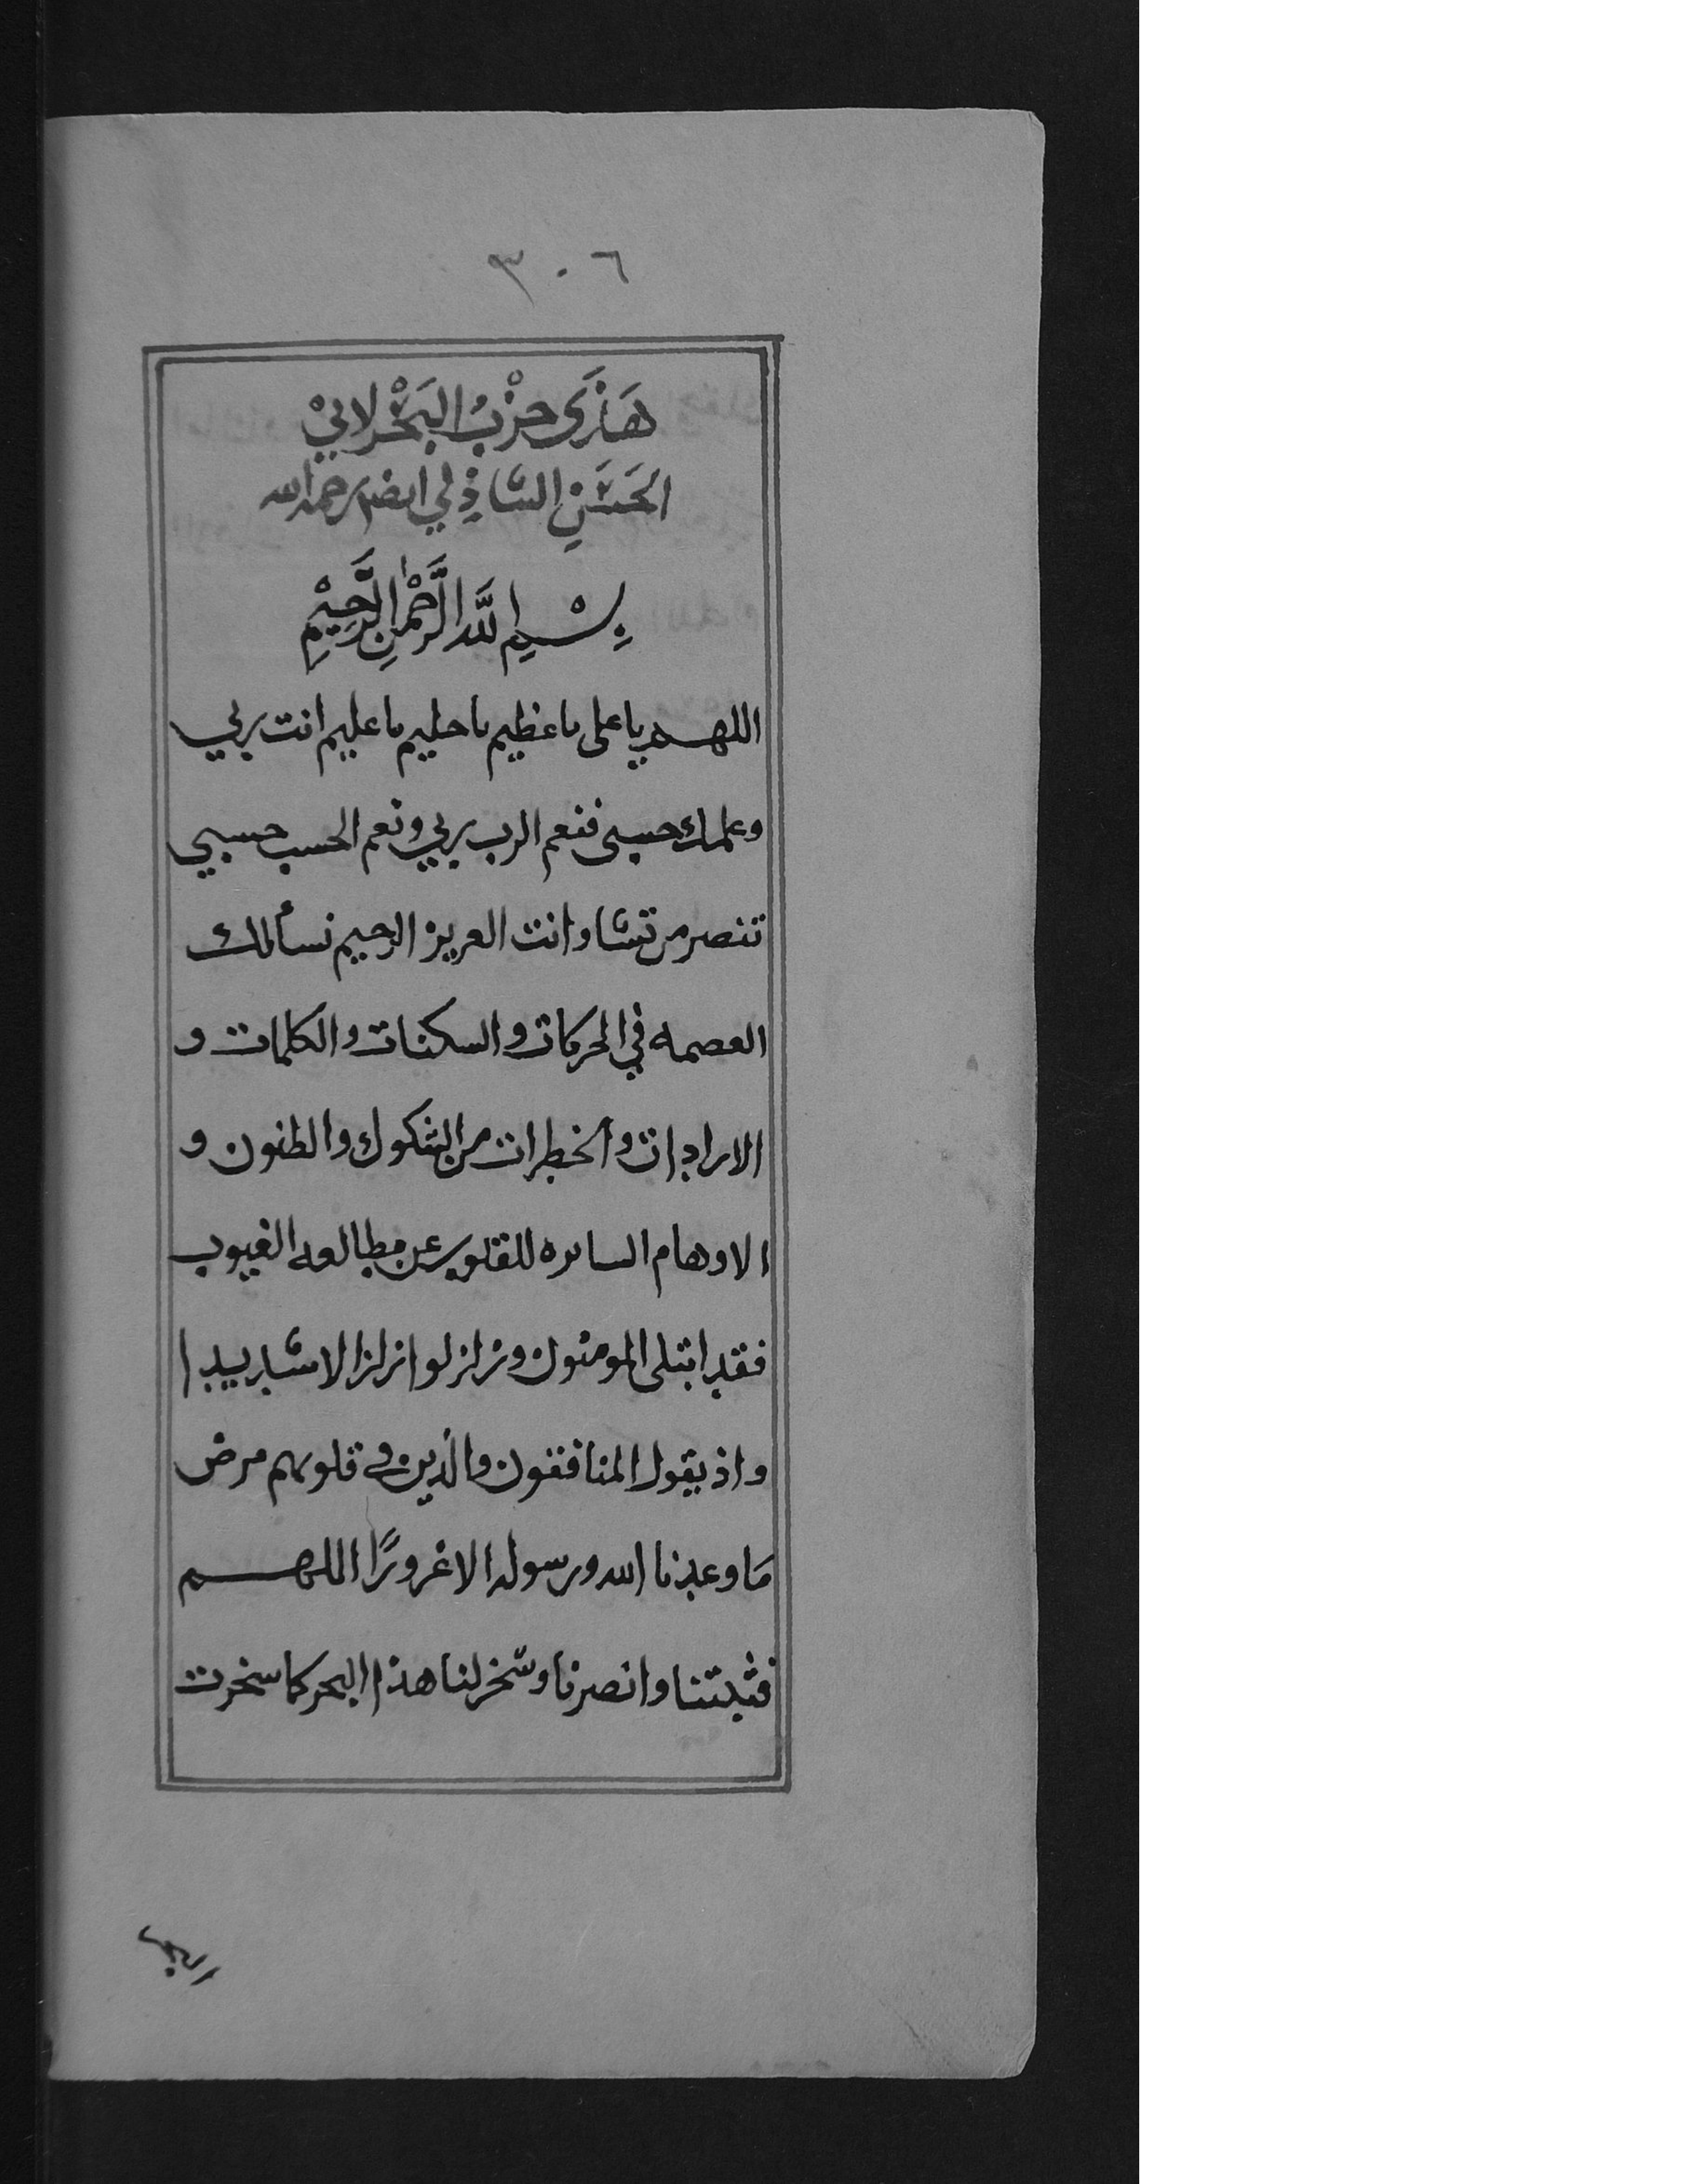 ٣٠٦
هَذَى حِزْبُ البَحْر لابيْ
الحَسَنِ الشَاذِلي ايضا رحمه الله
بِسْمِ اللَّهِ الرَّحْمٰنِ الرَّحِيْمِ
اللهم يا على يا عظيم يا حليم يا عليم انت ربي
وعلمك حسبى فنعم الرب ربي ونعم الحسب حسبي
تنصر من تشا وانت العزيز الرحيم نسألك
العصمه في الحركات والسكنات والكلمات و
الارادات والخطرات من الشكوك والظنون و
الاوهام الساتره للقلوب عن مطالعه الغيوب
فقد ابتلى المومنون وزلزلوا زلزالا شديدا
واذ يقول المنافقون والذين في قلوبهم مرض
مَا وعدنا الله ورسوله الا غرورًا اللهم
فثبتنا وانصرنا وسّخر لنا هذا البحر كما سخرت
البحر